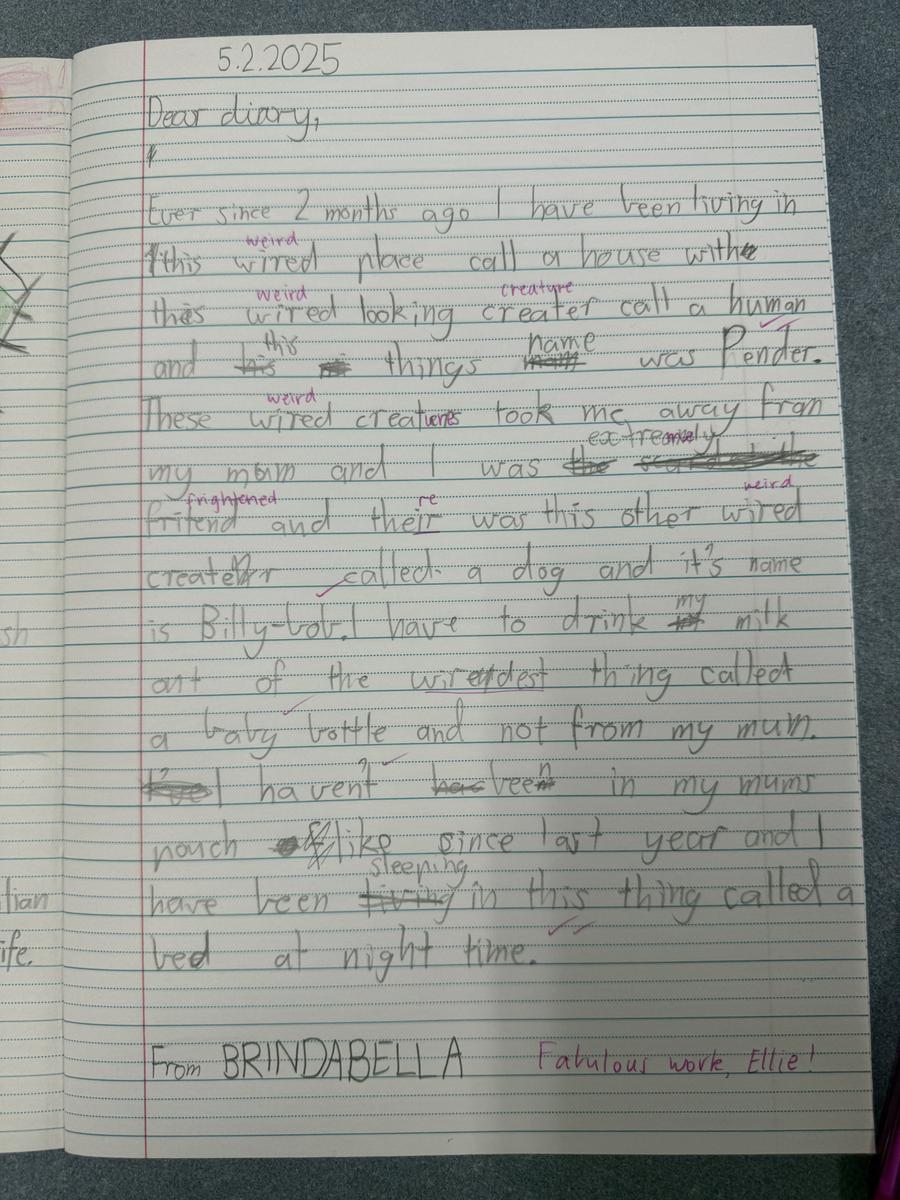 5.2.2025
Dear diary,
Ever since 2 months ago I have been living in
weird
this wired place call a house with
weird creature
this wired looking creater call a human
this name
and his things was Pender.
weird
These wired creatures took me away from
extremely
my mum and I was the
frightened re weird
fritend and their was this other wired
creater called a dog and it's name
is Billy-bob. I have to drink my milk
out of the wirerdest thing called
a baby bottle and not from my mum.
I haven't been in my mums
pouch like since last year and I
sleeping
have been living in this thing called a
bed at night time.
From BRINDABELLA Fabulous work, Ellie!
sh
lian
ife.